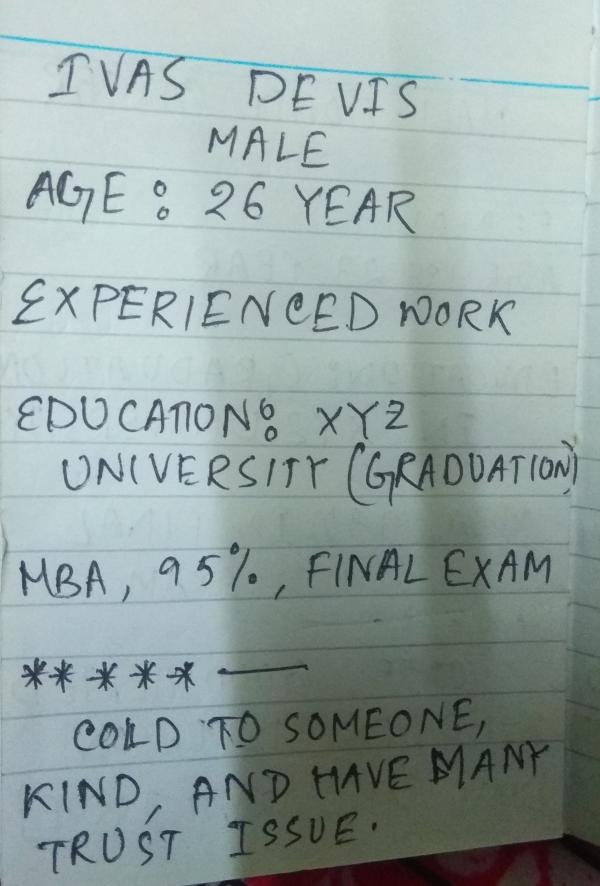 IVAS DEVIS
MALE
AGE : 26 YEAR
EXPERIENCED WORK
EDUCATION: XYZ
UNIVERSITY (GRADUATION)
MBA, 95%, FINAL EXAM
***** —
COLD TO SOMEONE,
KIND, AND HAVE MANY
TRUST ISSUE.